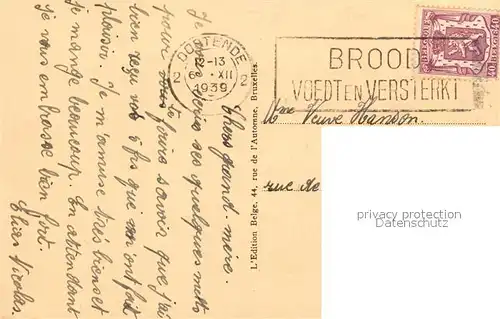 Chers grand-mère.
Je vous écris ces quelques mots
pour vous faire savoir que j'ai
bien reçu vos 5 frs qui m'ont fait
plaisir. Je m'amuse très bien et
je mange beaucoup. En attendant
je vous embrasse bien fort.
Nicolas.
L'Edition Belge, 44, rue de l'Automne, Bruxelles.
OOSTENDE
12-13
6 XII
1939
2 2
BROOD
VOEDT EN VERSTERKT
BELGIQUE BELGIE
40 40
Mme Veuve Hanson.
rue de
privacy protection
Datenschutz